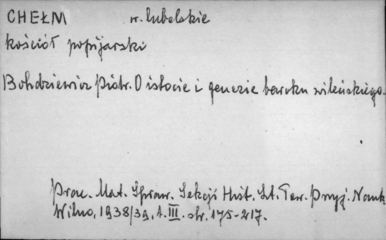 CHEŁM w. lubelskie
kościół popijarski
Bohdziewicz Piotr. O istocie i genezie baroku wileńskiego.
Prac. Mat. Spraw. Sekcji Hist. Szt. Tow. Przyj. Nauk
Wilno, 1938/39, t. III. str. 175-217.